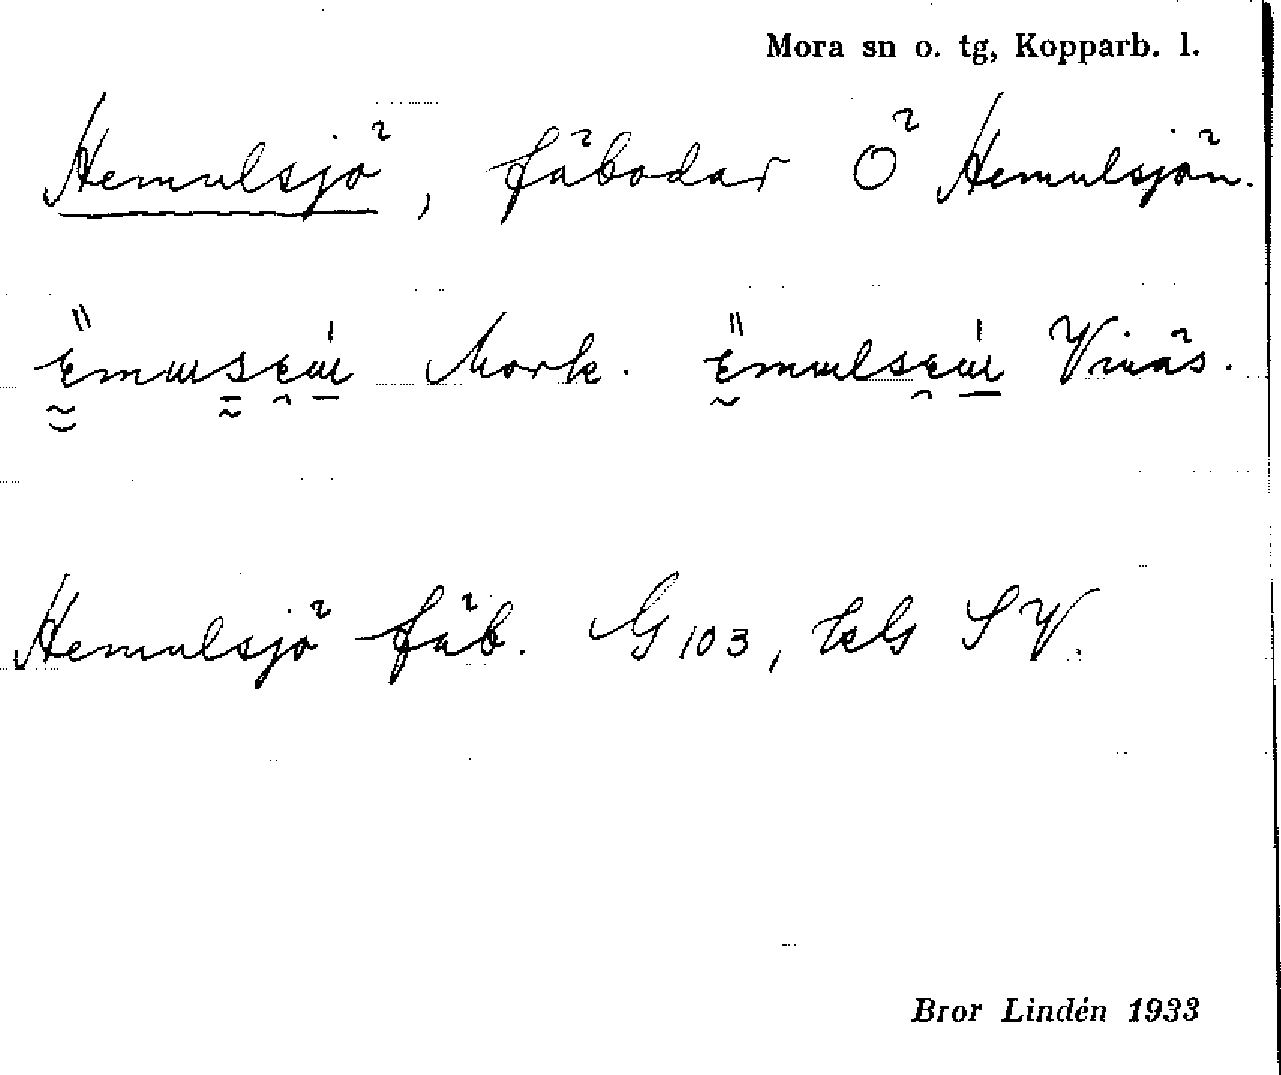 Mora sn o. tg, Kopparb. l.
Hemulsjö, fäbodar Ö Hemulsjön.
Mork. Vinäs.
Hemulsjö fäb. G 103, kG SV.
Bror Lindén 1933